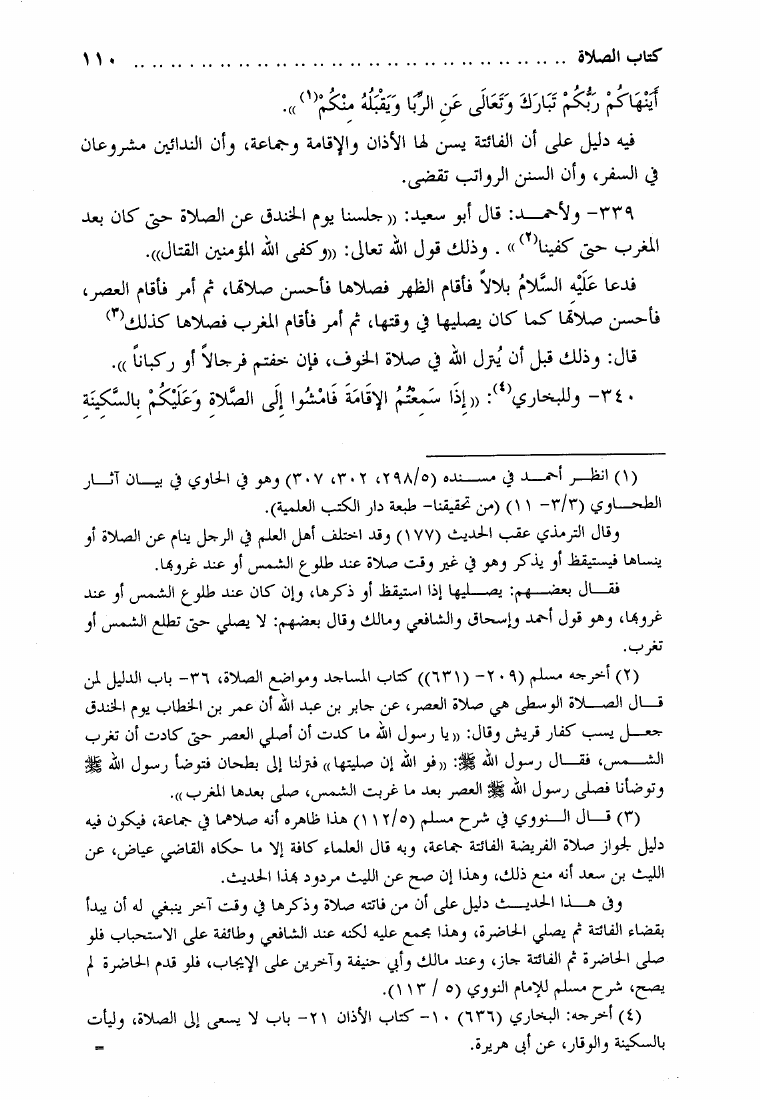 كتاب الصلاة .................................................. ١١٠
أَيَنْهَاكُمْ رَبُّكُمْ تَبَارَكَ وَتَعَالَى عَنِ الرِّبَا وَيَقْبَلُهُ مِنْكُمْ(١)».
فيه دليل على أن الفائتة يسن لها الأذان والإقامة وجماعة، وأن الندائين مشروعان
في السفر، وأن السنن الرواتب تقضى.
٣٣٩- ولأحمـد: قال أبو سعيد: «جلسنا يوم الخندق عن الصلاة حتى كان بعد
المغرب حتى كفينا(٢)» . وذلك قول الله تعالى: «وكفى الله المؤمنين القتال».
فدعا عَلَيْهِ السَّلَامُ بلالاً فأقام الظهر فصلاها فأحسن صلاتها، ثم أمر فأقام العصر،
فأحسن صلاتها كما كان يصليها في وقتها، ثم أمر فأقام المغرب فصلاها كذلك(٣)
قال: وذلك قبل أن يُنزل الله في صلاة الخوف، فإن خفتم فرجالاً أو ركباناً ».
٣٤٠- وللبخاري(٤): «إِذَا سَمِعْتُمُ الإِقَامَةَ فَامْشُوا إِلَى الصَّلَاةِ وَعَلَيْكُمْ بِالسَّكِينَةِ
(١) انظـر أحمـد في مسـنده (٢٩٨/٥، ٣٠٢، ٣٠٧) وهو في الحاوي في بيـان آثـار
الطحـاوي (٣/٣- ١١) (من تحقيقنا- طبعة دار الكتب العلمية).
وقال الترمذي عقب الحديث (١٧٧) وقد اختلف أهل العلم في الرجل ينام عن الصلاة أو
ينساها فيستيقظ أو يذكر وهو في غير وقت صلاة عند طلوع الشمس أو عند غروبها.
فقـال بعضـهم: يصـليها إذا استيقظ أو ذكرها، وإن كان عند طلوع الشمس أو عند
غروبها، وهو قول أحمد وإسحاق والشافعي ومالك وقال بعضهم: لا يصلي حتى تطلع الشمس أو
تغرب.
(٢) أخرجه مسلم (٢٠٩- (٦٣١)) كتاب المساجد ومواضع الصلاة، ٣٦- باب الدليل لمن
قـال الصـلاة الوسطى هي صلاة العصر، عن جابر بن عبد الله أن عمر بن الخطاب يوم الخندق
جعـل يسب كفار قريش وقال: «يا رسول الله ما كدت أن أصلي العصر حتى كادت أن تغرب
الشـمس، فقـال رسول الله ﷺ: «فو الله إن صليتها» فنزلنا إلى بطحان فتوضأ رسول الله ﷺ
وتوضأنا فصلى رسول الله ﷺ العصر بعد ما غربت الشمس، صلى بعدها المغرب».
(٣) قـال الـنووي في شرح مسلم (١١٢/٥) هذا ظاهره أنه صلاهما في جماعة، فيكون فيه
دليل لجواز صلاة الفريضة الفائتة جماعة، وبه قال العلماء كافة إلا ما حكاه القاضي عياض، عن
الليث بن سعد أنه منع ذلك، وهذا إن صح عن الليث مردود بهذا الحديث.
وفى هـذا الحديـث دليل على أن من فاتته صلاة وذكرها في وقت آخر ينبغي له أن يبدأ
بقضاء الفائتة ثم يصلي الحاضرة، وهذا مجمع عليه لكنه عند الشافعي وطائفة على الاستحباب فلو
صلى الحاضرة ثم الفائتة جاز، وعند مالك وأبي حنيفة وآخرين على الإيجاب، فلو قدم الحاضرة لم
يصح، شرح مسلم للإمام النووي (٥ / ١١٣).
(٤) أخرجه: البخاري (٦٣٦) ١٠- كتاب الأذان ٢١- باب لا يسعى إلى الصلاة، وليأت
بالسكينة والوقار، عن أبى هريرة.
=